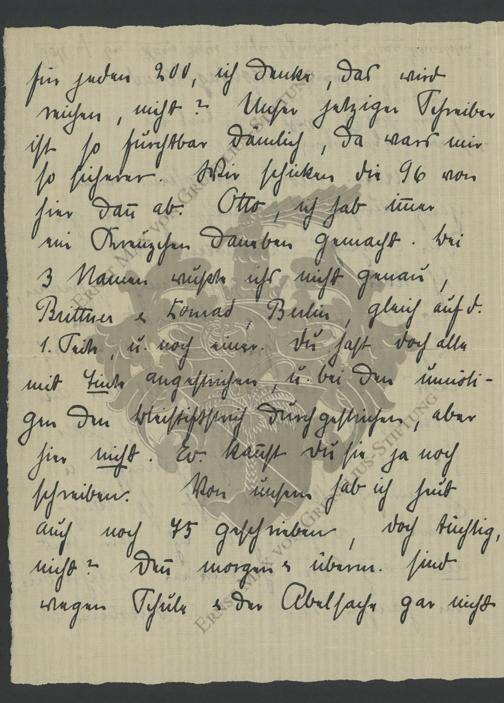 für jeden 200, ich denke, das wird
reichen, nicht? Unser jetziger Schreiber
ist so furchtbar dämlich, da wars mir
so sicherer. Wir schicken die 96 von
hier dan̄ ab. Otto, ich hab im̄er
ein Kreuzchen daneben gemacht. Bei
3 Namen wußte ichs nicht genau,
Brittner & Konrad, Berlin, gleich auf d.
1. Seite, u. noch einer. Du hast doch alle
mit Tinte angestrichen, u. bei den unnöti-
gen den Bleistiftstrich durchgestrichen, aber
hier nicht. Ev. kannst Du sie ja noch
schreiben. Von unsern hab ich heut
auch noch 75 geschrieben, doch tüchtig,
nicht? Den morgen & überm. sind
wegen Schule & der Abelsache gar nicht
Ernst-Melvon-Grotthuss-Stiftung